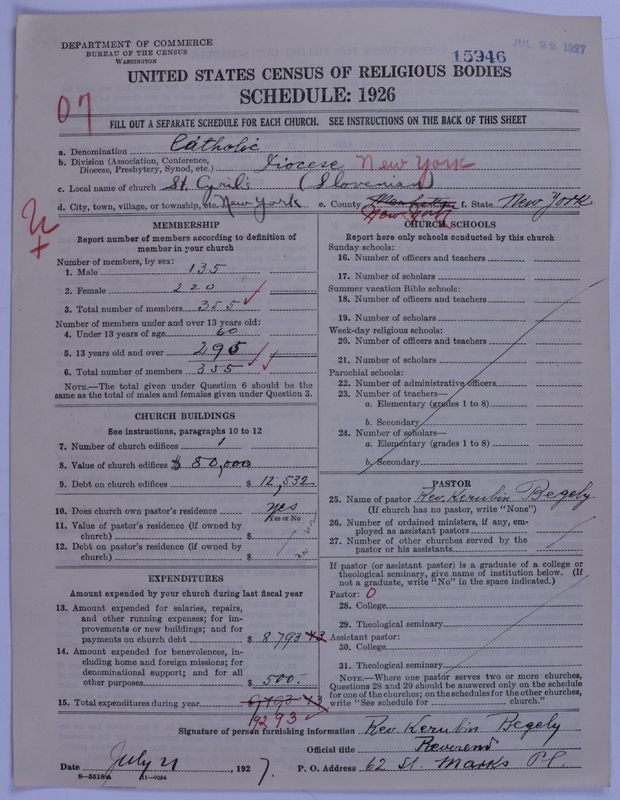 DEPARTMENT OF COMMERCE
BUREAU OF THE CENSUS
WASHINGTON
15946
JUL 22 1927
UNITED STATES CENSUS OF RELIGIOUS BODIES
SCHEDULE: 1926
07
FILL OUT A SEPARATE SCHEDULE FOR EACH CHURCH. SEE INSTRUCTIONS ON THE BACK OF THIS SHEET
a. Denomination Catholic
b. Division (Association, Conference, Diocese, Presbytery, Synod, etc.) Diocese New York
c. Local name of church St. Cyril's (Slovenian)
d. City, town, village, or township, etc. New York e. County Manhattan New York f. State New York
MEMBERSHIP
Report number of members according to definition of
member in your church
Number of members, by sex:
1. Male 135
2. Female 220
3. Total number of members 355
Number of members under and over 13 years old:
4. Under 13 years of age 60
5. 13 years old and over 295
6. Total number of members 355
NOTE.—The total given under Question 6 should be the
same as the total of males and females given under Question 3.
CHURCH BUILDINGS
See instructions, paragraphs 10 to 12
7. Number of church edifices 1
8. Value of church edifices $ 80,000
9. Debt on church edifices $ 12,532
10. Does church own pastor's residence yes
Yes or No
11. Value of pastor's residence (if owned by
church) $
12. Debt on pastor's residence (if owned by
church) $
EXPENDITURES
Amount expended by your church during last fiscal year
13. Amount expended for salaries, repairs,
and other running expenses; for im-
provements or new buildings; and for
payments on church debt $ 8,793 43
14. Amount expended for benevolences, in-
cluding home and foreign missions; for
denominational support; and for all
other purposes $ 500.-
15. Total expenditures during year
9293
CHURCH SCHOOLS
Report here only schools conducted by this church
Sunday schools:
16. Number of officers and teachers
17. Number of scholars
Summer vacation Bible schools:
18. Number of officers and teachers
19. Number of scholars
Week-day religious schools:
20. Number of officers and teachers
21. Number of scholars
Parochial schools:
22. Number of administrative officers
23. Number of teachers—
a. Elementary (grades 1 to 8)
b. Secondary
24. Number of scholars—
a. Elementary (grades 1 to 8)
b. Secondary
PASTOR
25. Name of pastor Rev. Kerubin Begely
(If church has no pastor, write "None")
26. Number of ordained ministers, if any, em-
ployed as assistant pastors
27. Number of other churches served by the
pastor or his assistants
If pastor (or assistant pastor) is a graduate of a college or
theological seminary, give name of institution below. (If
not a graduate, write "No" in the space indicated.)
Pastor: 0
28. College
29. Theological seminary
Assistant pastor:
30. College
31. Theological seminary
NOTE.—Where one pastor serves two or more churches,
Questions 28 and 29 should be answered only on the schedule
for one of the churches; on the schedules for the other churches,
write "See schedule for church."
Signature of person furnishing information Rev. Kerubin Begely
Official title Reverend
Date July 21, 1927. P. O. Address 62 St. Marks Pl.
8-5518a 11-9054